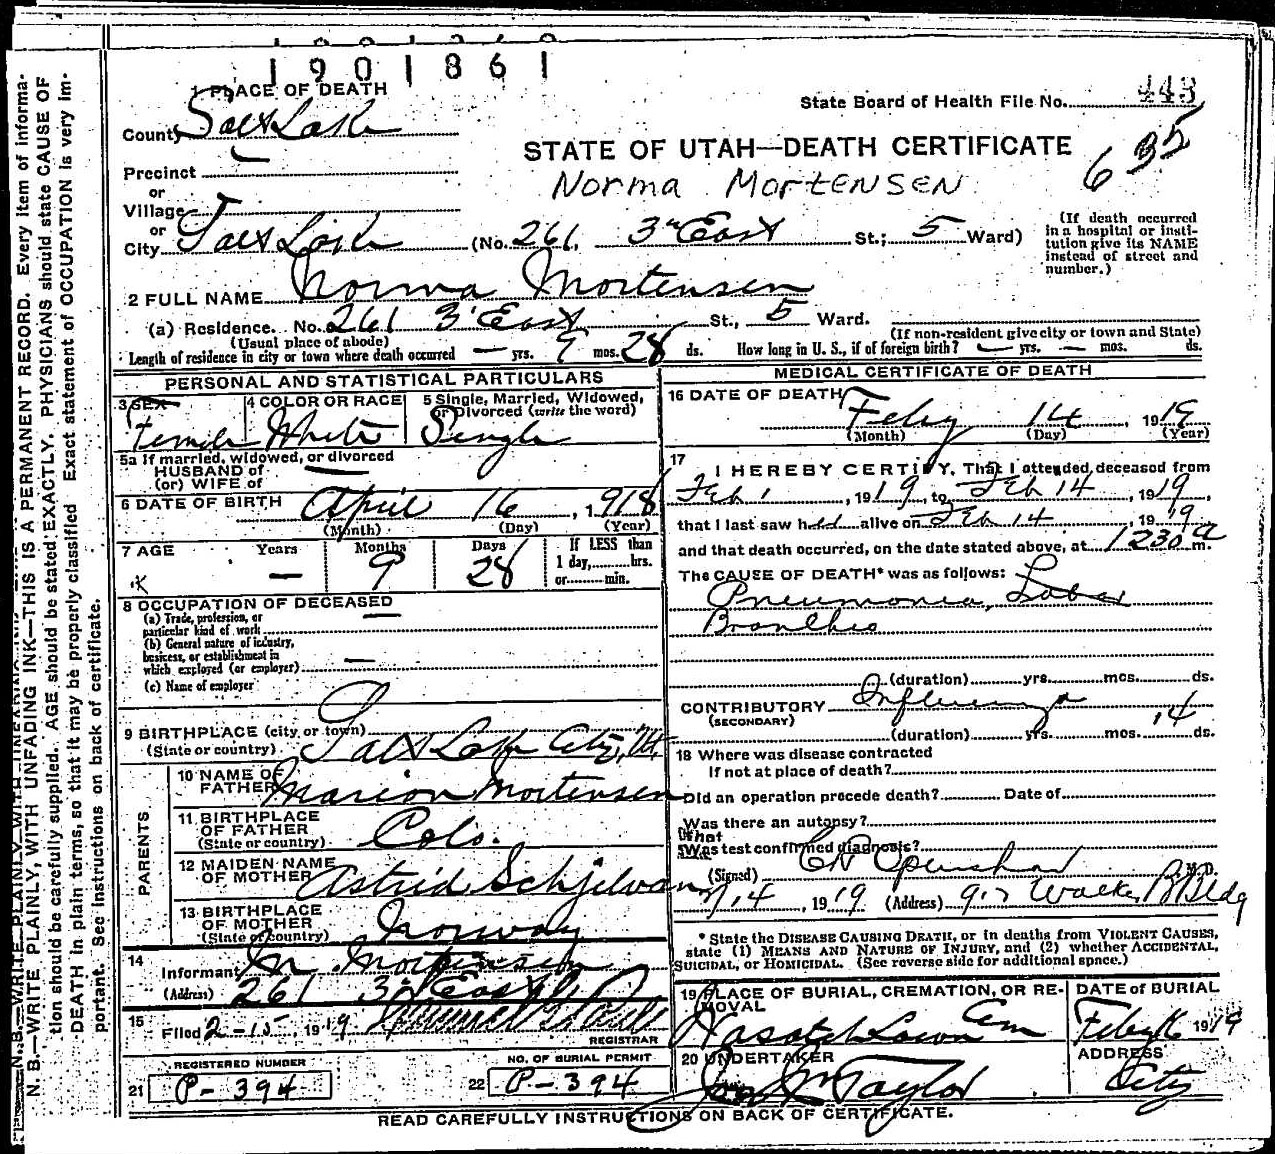 1901861
1 PLACE OF DEATH
State Board of Health File No. 443
County Salt Lake
635
STATE OF UTAH—DEATH CERTIFICATE
Precinct
Norma Mortensen
or
Village
or
City Salt Lake (No. 261, 3rd East St.; 5 Ward)
(If death occurred in a hospital or institution give its NAME instead of street and number.)
2 FULL NAME Norma Mortensen
(a) Residence. No. 261 3rd East St., 5 Ward.
(Usual place of abode)
(If non-resident give city or town and State)
Length of residence in city or town where death occurred — yrs. 9 mos. 28 ds. How long in U. S., if of foreign birth? — yrs. — mos. ds.
PERSONAL AND STATISTICAL PARTICULARS
3 SEX Female
4 COLOR OR RACE White
5 Single, Married, Widowed, or Divorced (write the word) Single
5a If married, widowed, or divorced
HUSBAND of
(or) WIFE of
6 DATE OF BIRTH April 16, 1918
(Month) (Day) (Year)
7 AGE Years — Months 9 Days 28 If LESS than 1 day, hrs. or min.
8 OCCUPATION OF DECEASED —
(a) Trade, profession, or particular kind of work
(b) General nature of industry, business, or establishment in which employed (or employer) —
(c) Name of employer
9 BIRTHPLACE (city or town) Salt Lake City, Ut.
(State or country)
PARENTS
10 NAME OF FATHER Marion Mortensen
11 BIRTHPLACE OF FATHER Colo.
(State or country)
12 MAIDEN NAME OF MOTHER Astrid Schjelvan
13 BIRTHPLACE OF MOTHER Norway
(State or country)
14 Informant M. Mortensen
(Address) 261 3rd East
15 Filed 2-15 1919
REGISTRAR
REGISTERED NUMBER
21 P-394
NO. OF BURIAL PERMIT
22 P-394
MEDICAL CERTIFICATE OF DEATH
16 DATE OF DEATH Feby 14, 1919
(Month) (Day) (Year)
17 I HEREBY CERTIFY, That I attended deceased from
Feb 1, 1919, to Feb 14, 1919,
that I last saw her alive on Feb 14, 1919
and that death occurred, on the date stated above, at 1230 a m.
The CAUSE OF DEATH* was as follows:
Pneumonia, Lobar
Bronchio
(duration) yrs. mos. ds.
CONTRIBUTORY Influenza
(SECONDARY)
(duration) yrs. mos. 14 ds.
18 Where was disease contracted
If not at place of death?
Did an operation precede death? Date of
Was there an autopsy?
What test confirmed diagnosis?
(Signed) M.D.
2/14, 1919 (Address) 917 Walker B Bldg
* State the DISEASE CAUSING DEATH, or in deaths from VIOLENT CAUSES, state (1) MEANS AND NATURE OF INJURY, and (2) whether ACCIDENTAL, SUICIDAL, or HOMICIDAL. (See reverse side for additional space.)
19 PLACE OF BURIAL, CREMATION, OR REMOVAL
Wasatch Lawn Cem
DATE of BURIAL
Feby 16 1919
20 UNDERTAKER
Jos Wm Taylor
ADDRESS
City
READ CAREFULLY INSTRUCTIONS ON BACK OF CERTIFICATE.
N. B.—WRITE PLAINLY, WITH UNFADING INK—THIS IS A PERMANENT RECORD. Every item of information should be carefully supplied. AGE should be stated EXACTLY. PHYSICIANS should state CAUSE OF DEATH in plain terms, so that it may be properly classified. Exact statement of OCCUPATION is very important. See instructions on back of certificate.